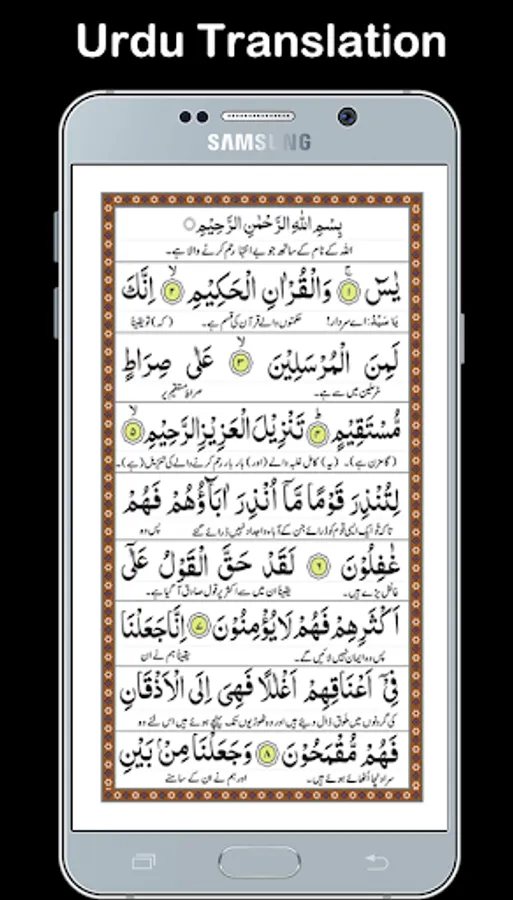 Urdu Translation
SAMSUNG
بِسْمِ اللهِ الرَّحْمٰنِ الرَّحِيْمِ
اللہ کے نام کے ساتھ جو بے انتہا رحم کرنے والا ہے۔
يٰسٓ ۚ ۱ وَالْقُرْاٰنِ الْحَكِيْمِ ۙ ۲ اِنَّكَ
یَا سَیِّدُ: اے سردار! حکمتوں والے قرآن کی قسم ہے۔ (کہ) تو یقیناً
لَمِنَ الْمُرْسَلِيْنَ ۙ ۳ عَلٰى صِرَاطٍ
مُرسَلین میں سے ہے۔ صراطِ مستقیم پر
مُّسْتَقِيْمٍ ؕ ۴ تَنْزِيْلَ الْعَزِيْزِ الرَّحِيْمِ ۙ ۵
(گامزن ہے)۔ (یہ) کامل غلبہ والے (اور) بار بار رحم کرنے والے کی تنزیل (ہے)۔
لِتُنْذِرَ قَوْمًا مَّاۤ اُنْذِرَ اٰبَآؤُهُمْ فَهُمْ
تاکہ تو ایک ایسی قوم کو ڈرائے جن کے آباء و اجداد نہیں ڈرائے گئے پس وہ
غٰفِلُوْنَ ۶ لَقَدْ حَقَّ الْقَوْلُ عَلٰۤى
غافل پڑے ہیں۔ یقیناً ان میں سے اکثر پر قول صادق آ گیا ہے۔
اَكْثَرِهِمْ فَهُمْ لَا يُؤْمِنُوْنَ ۷ اِنَّا جَعَلْنَا
پس وہ ایمان نہیں لائیں گے۔ یقیناً ہم نے ان
فِيْۤ اَعْنَاقِهِمْ اَغْلٰلًا فَهِيَ اِلَى الْاَذْقَانِ
کی گردنوں میں طوق ڈال دیئے ہیں اور وہ ٹھوڑیوں تک پہنچے ہوئے ہیں اس لئے وہ
فَهُمْ مُّقْمَحُوْنَ ۸ وَجَعَلْنَا مِنْۢ بَيْنِ
سر اونچا اُٹھائے ہوئے ہیں۔ اور ہم نے ان کے سامنے